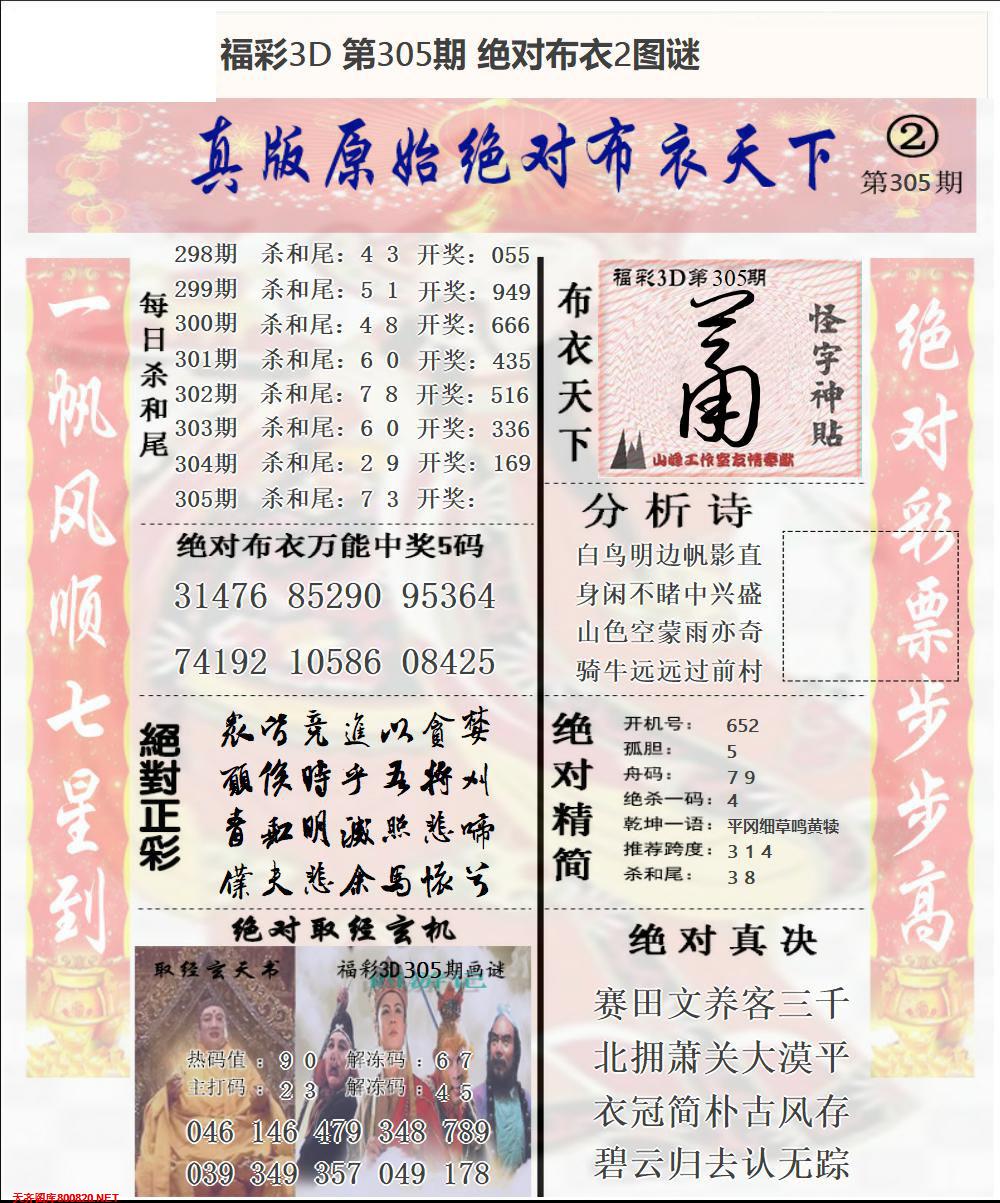 福彩3D 第305期 绝对布衣2图谜
真版原始绝对布衣天下
②
第305期
一帆风顺七星到
每日杀和尾
298期 杀和尾：4 3 开奖：055
299期 杀和尾：5 1 开奖：949
300期 杀和尾：4 8 开奖：666
301期 杀和尾：6 0 开奖：435
302期 杀和尾：7 8 开奖：516
303期 杀和尾：6 0 开奖：336
304期 杀和尾：2 9 开奖：169
305期 杀和尾：7 3 开奖：
绝对布衣万能中奖5码
31476 85290 95364
74192 10586 08425
絕對正彩
衆皆竞進以貪婪
願俟時乎吾将刈
青和明滅照悲啼
僕夫悲余馬懷兮
绝对取经玄机
取经玄天书
福彩3D305期画谜
热码值：9 0 解冻码：6 7
主打码：2 3 解冻码：4 5
046 146 479 348 789
039 349 357 049 178
布衣天下
福彩3D第305期
怪字神貼
山峰工作室友情奉献
分析诗
白鸟明边帆影直
身闲不睹中兴盛
山色空蒙雨亦奇
骑牛远远过前村
绝对精简
开机号：652
孤胆：5
舟码：7 9
绝杀一码：4
乾坤一语：平冈细草鸣黄犊
推荐跨度：3 1 4
杀和尾：3 8
绝对真决
赛田文养客三千
北拥萧关大漠平
衣冠简朴古风存
碧云归去认无踪
绝对彩票步步高
天齐图库800820.NET